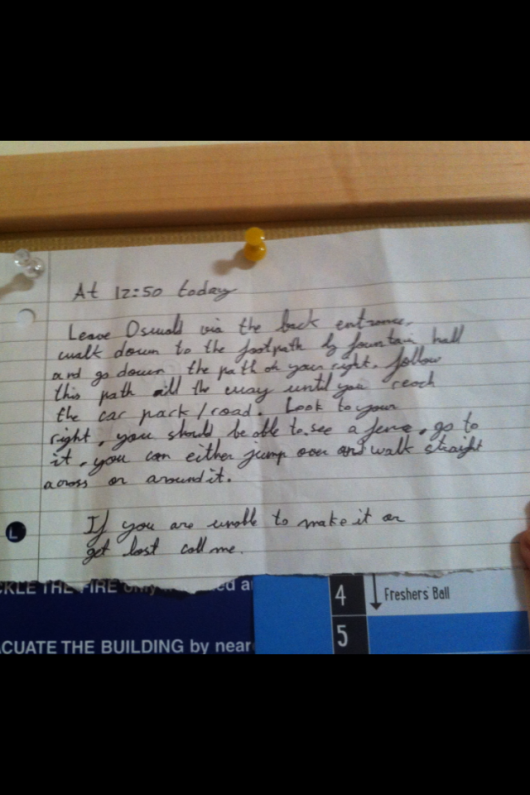 At 12:50 today
Leave Oswald via the back entrance,
walk down to the footpath by fountain hall
and go down the path on your right. follow
this path all the way until you reach
the car park/road. Look to your
right, you should be able to see a fence, go to
it, you can either jump over and walk straight
across or around it.
If you are unable to make it or
get lost call me.
L
CKLE THE FIRE only
ACUATE THE BUILDING by near
4 Freshers Ball
5